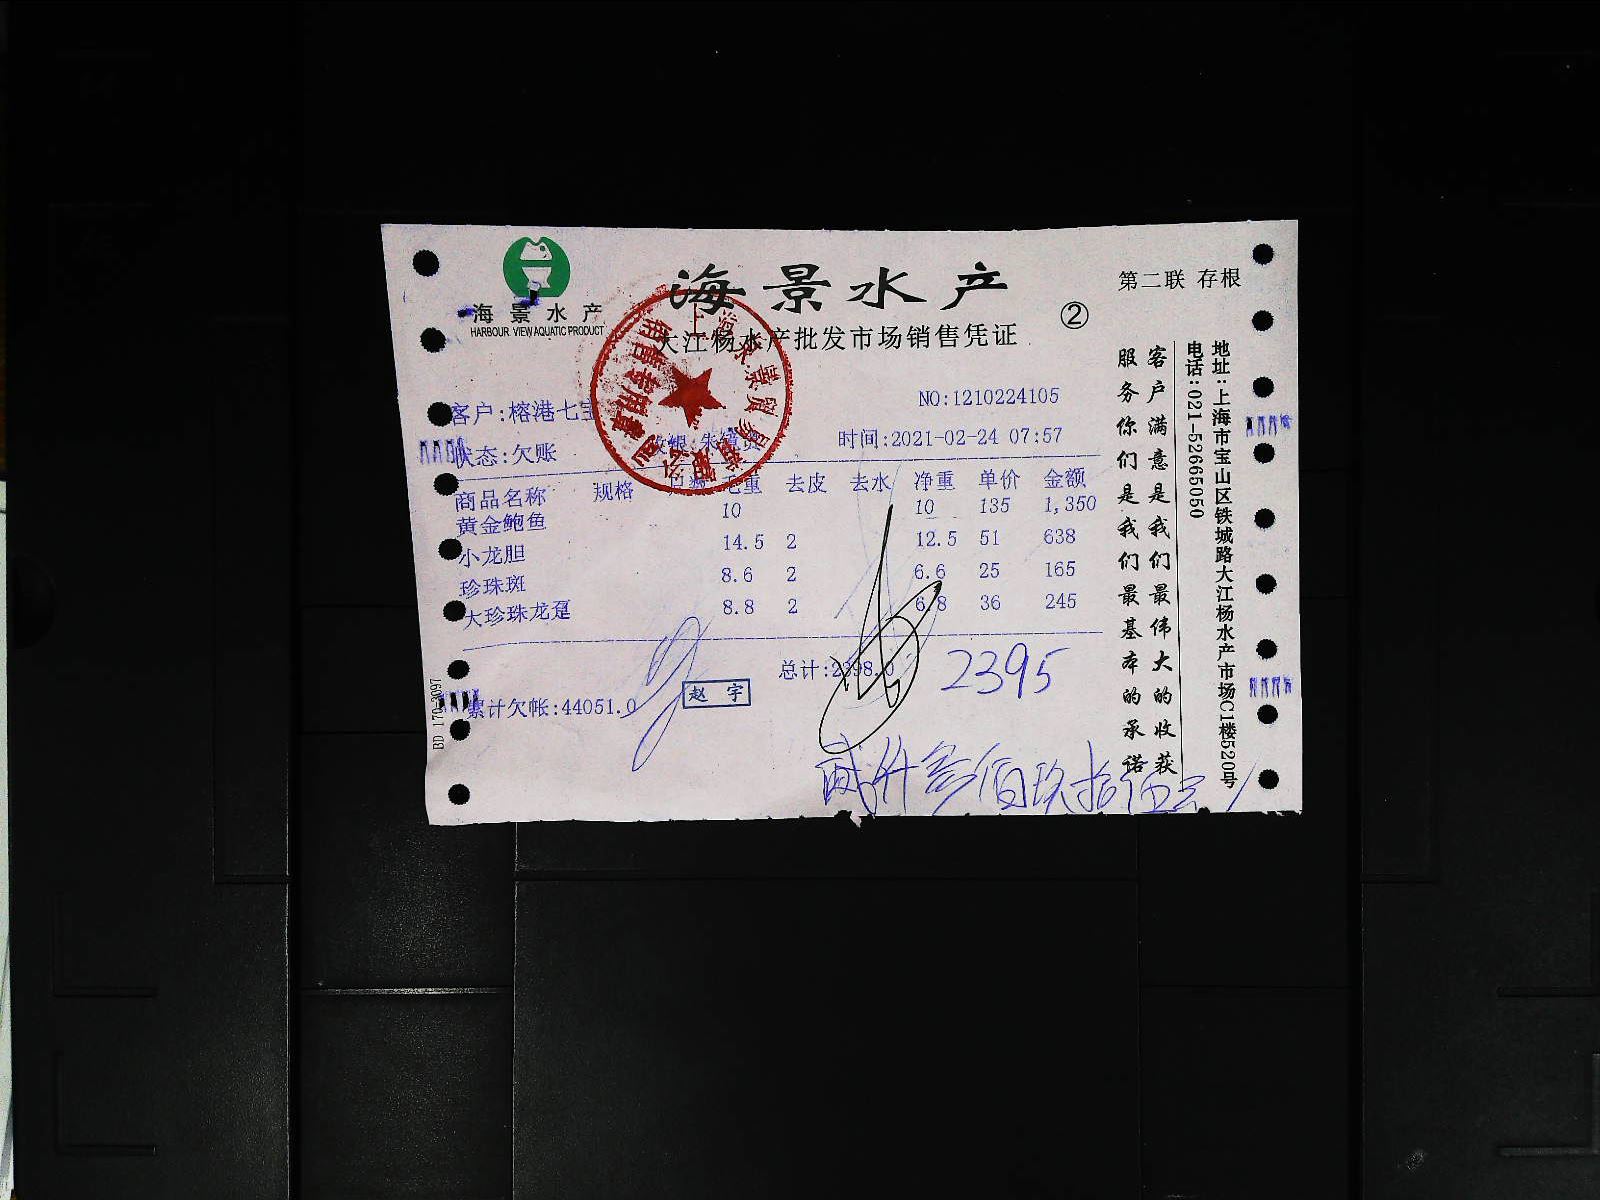 海景水产
HARBOUR VIEW AQUATIC PRODUCT
海景水产
大江杨水产批发市场销售凭证
②
第二联 存根
客户:榕港七宝
NO:1210224105
状态:欠账
时间:2021-02-24 07:57
商品名称 规格 毛重 去皮 去水 净重 单价 金额
黄金鲍鱼 10 10 135 1,350
小龙胆 14.5 2 12.5 51 638
珍珠斑 8.6 2 6.6 25 165
大珍珠龙趸 8.8 2 6.8 36 245
总计:2398.0
2395
累计欠帐:44051.0
赵宇
贰仟叁佰玖拾伍元
客户满意是我们最伟大的收获
服务你们是我们最基本的承诺
地址:上海市宝山区铁城路大江杨水产市场C1楼520号
电话:021-52665050
BD 170-2097
销售专用章